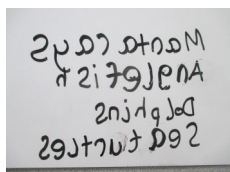 Manta rays
Anglefish
Dolphins
Sea turtles